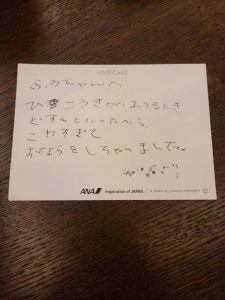 POST CARD
ふうちゃんへ
ひこうきがおりるとき
どすんといったから、
こわすぎて
おならをしちゃいましたて。
より
ANA Inspiration of JAPAN
A STAR ALLIANCE MEMBER